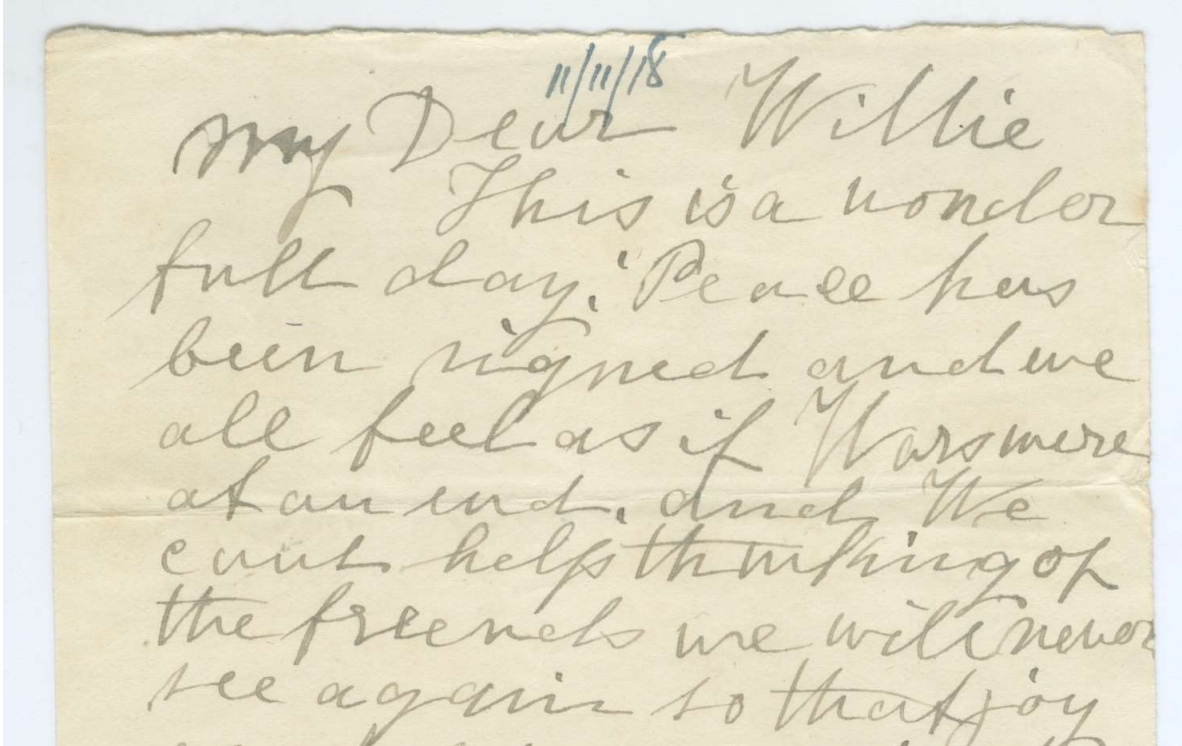 11/11/18
My Dear Willie
This is a wonder
full day. Peace has
been signed and we
all feel as if Wars were
at an end. and We
cant help thinking of
the freends we will never
see again so that joy